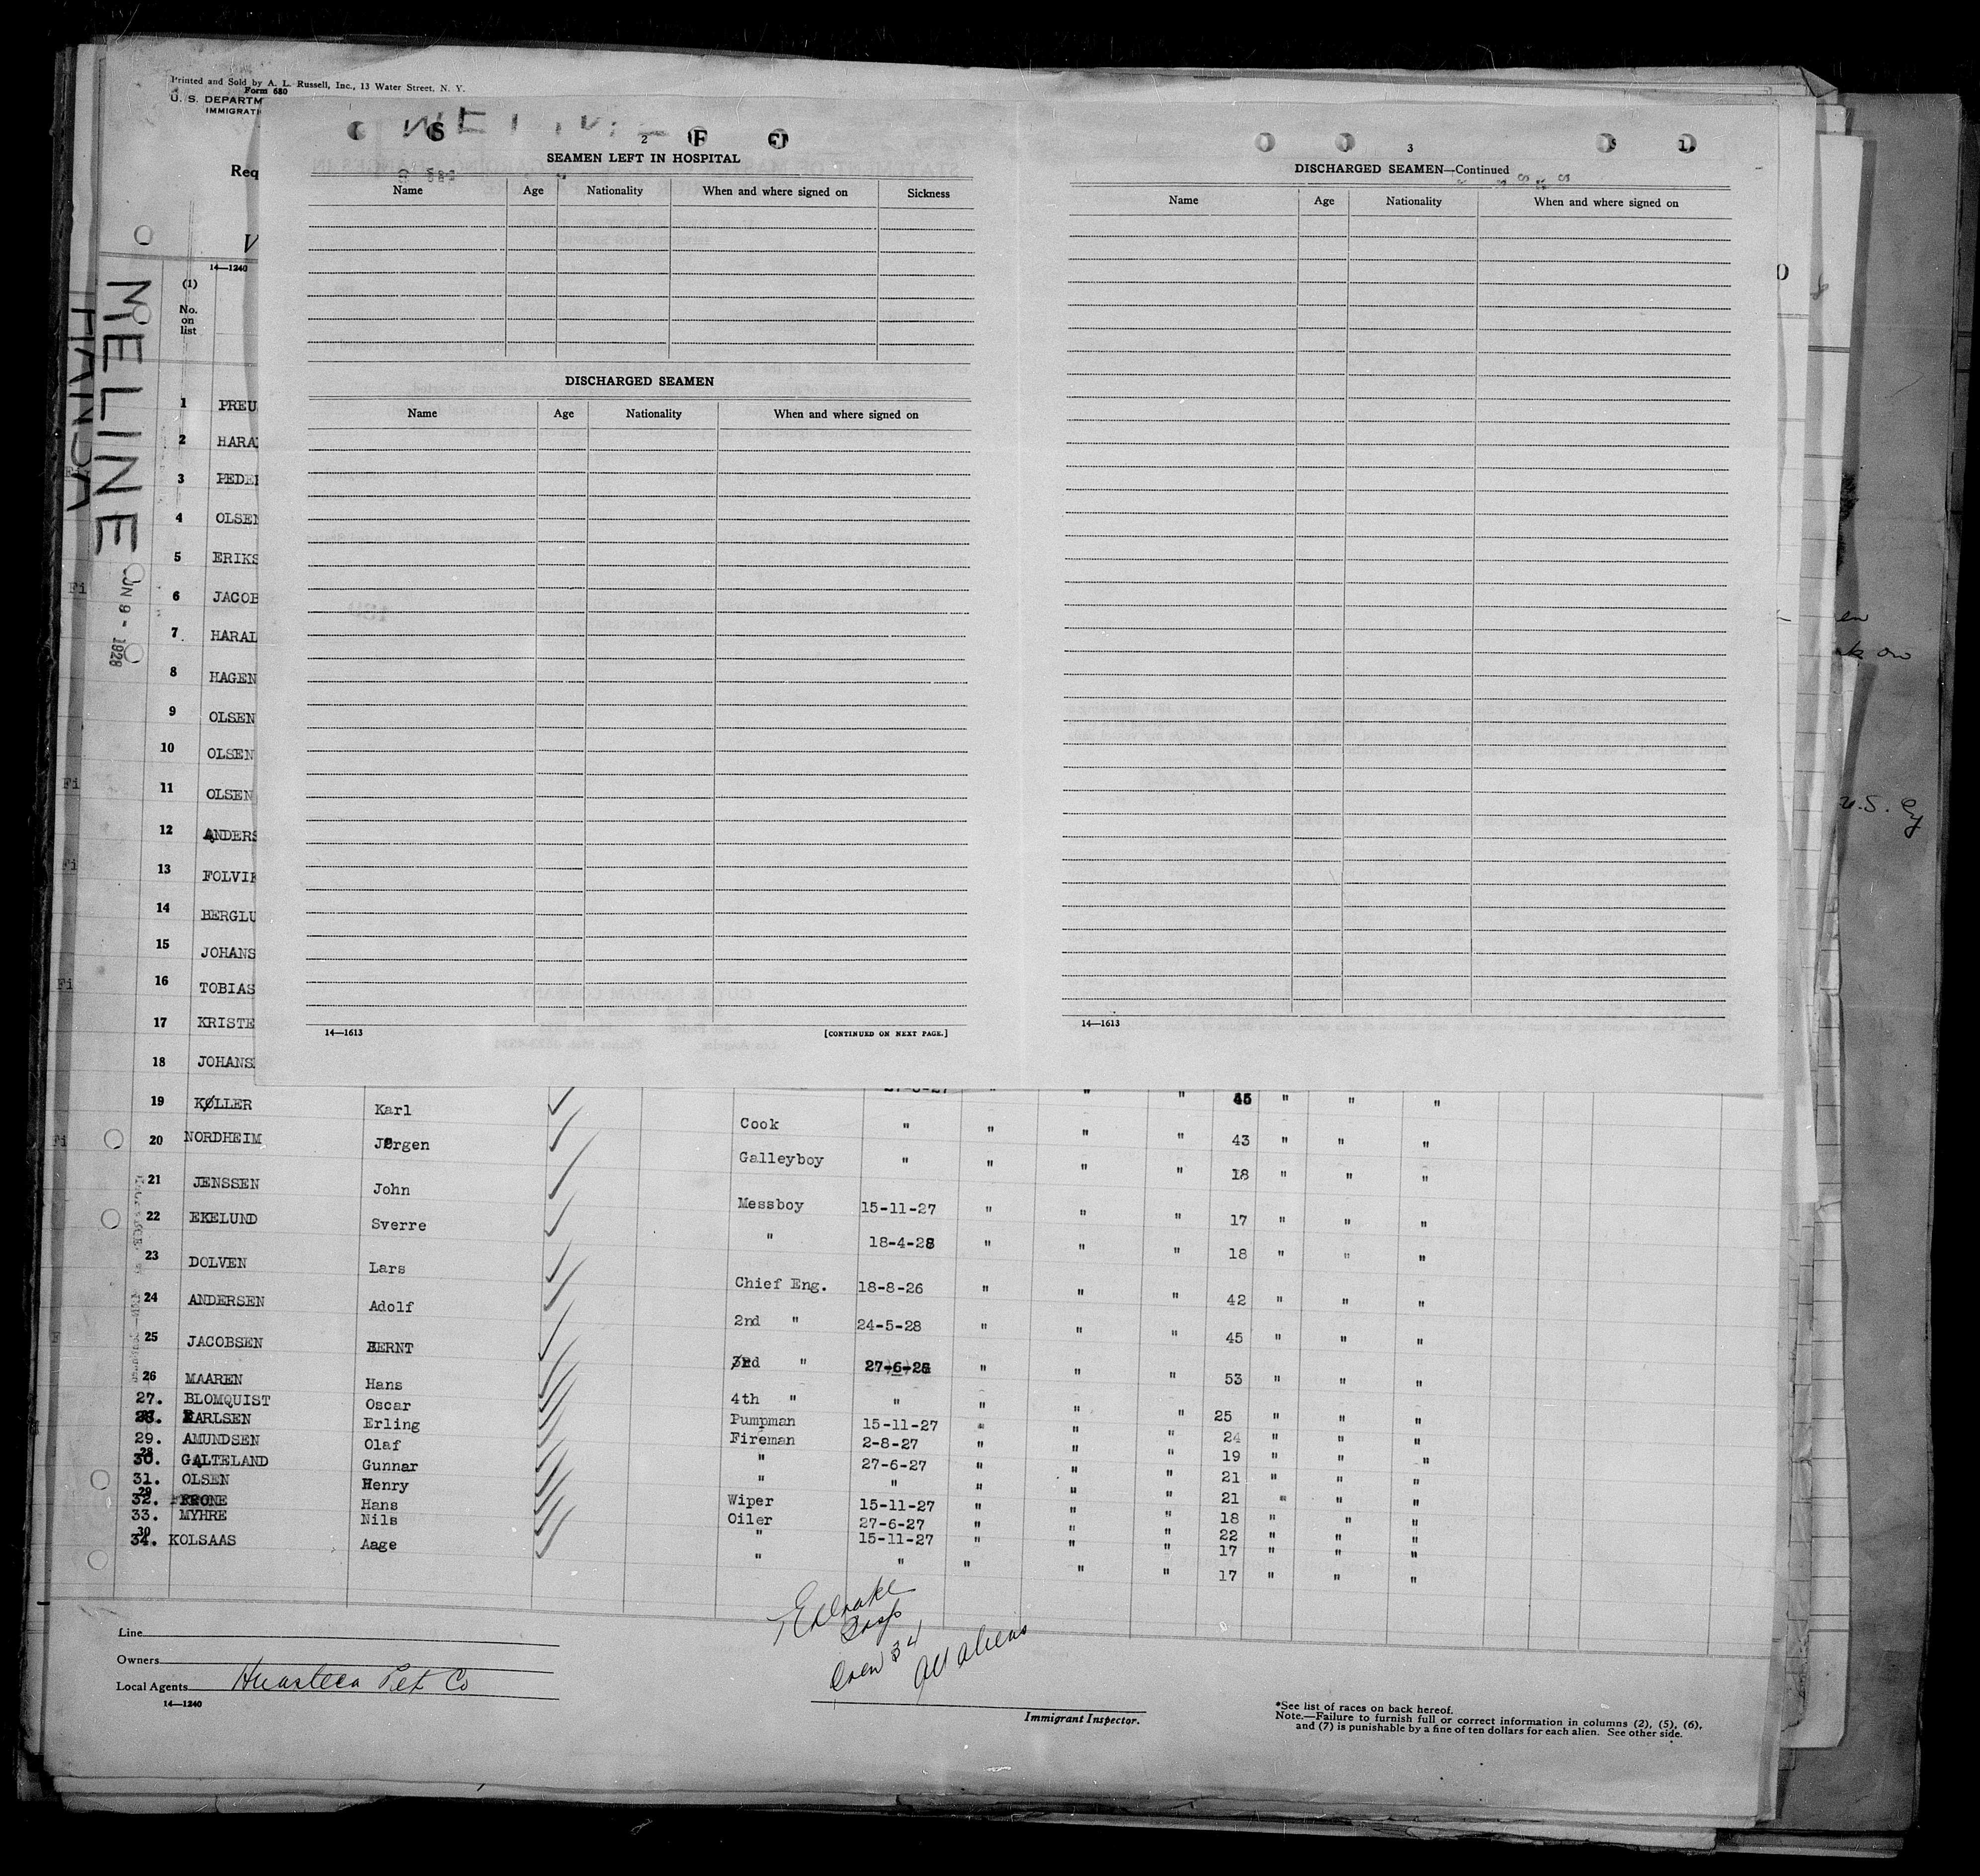 Printed and Sold by A. L. Russell, Inc., 13 Water Street, N. Y.
Form 680
U. S. DEPARTM
IMMIGRATI
Req
14—1240
(1)
No. on list
MELINE
HANSA
JUN 9 - 1928
2
SEAMEN LEFT IN HOSPITAL
Name Age Nationality When and where signed on Sickness
DISCHARGED SEAMEN
Name Age Nationality When and where signed on
14—1613 [CONTINUED ON NEXT PAGE.]
3
DISCHARGED SEAMEN—Continued
Name Age Nationality When and where signed on
14—1613
1 PREU
2 HARA
3 PEDE
4 OLSEN
5 ERIKS
6 JACOB
7 HARAL
8 HAGEN
9 OLSEN
10 OLSEN
11 OLSEN
12 ANDERS
13 FOLVIK
14 BERGLU
15 JOHANS
16 TOBIAS
17 KRISTE
18 JOHANS
27-6-27 " " " 45 " " "
19 KØLLER Karl Cook " " " " 43 " " "
20 NORDHEIM Jørgen Galleyboy " " " " 18 " " "
21 JENSSEN John Messboy 15-11-27 " " " 17 " " "
22 EKELUND Sverre " 18-4-28 " " " 18 " " "
23 DOLVEN Lars Chief Eng. 18-8-26 " " " 42 " " "
24 ANDERSEN Adolf 2nd " 24-5-28 " " " 45 " " "
25 JACOBSEN BERNT 3rd " 27-6-26 " " " 53 " " "
26 MAAREN Hans 4th " " " " " 25 " " "
27. BLOMQUIST Oscar Pumpman 15-11-27 " " " 24 " " "
28. KARLSEN Erling Fireman 2-8-27 " " " 19 " " "
29. AMUNDSEN Olaf " 27-6-27 " " " 21 " " "
30. GALTELAND Gunnar " " " " " 21 " " "
31. OLSEN Henry Wiper 15-11-27 " " " 18 " " "
32. KRONE Hans Oiler 27-6-27 " " " 22 " " "
33. MYHRE Nils " 15-11-27 " " " 17 " " "
34. KOLSAAS Aage " " " " " 17 " " "
Crew 34
All aliens
Line
Owners
Local Agents Huasteca Pet Co
14—1240
Immigrant Inspector.
*See list of races on back hereof.
Note.—Failure to furnish full or correct information in columns (2), (5), (6),
and (7) is punishable by a fine of ten dollars for each alien. See other side.